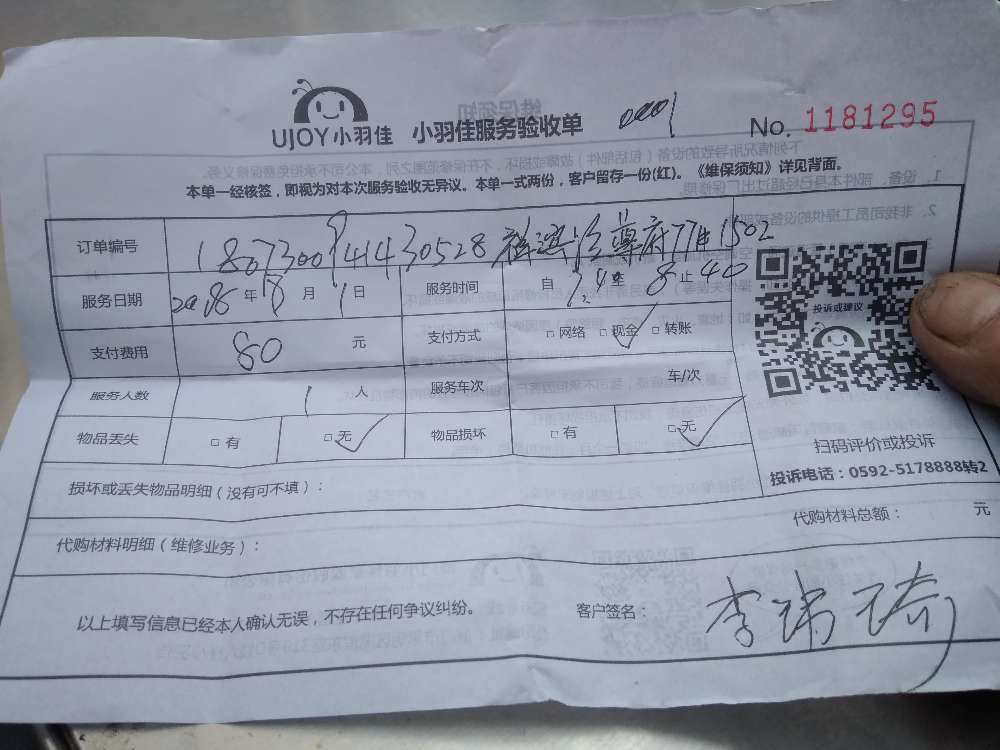 UJOY小羽佳 小羽佳服务验收单 No. 1181295
本单一经核签，即视为对本次服务验收无异议。本单一式两份，客户留存一份(红)。《维保须知》详见背面。
订单编号 180730094430528
服务日期 2018年8月1日 服务时间 自 止 8 40
支付费用 80 元 支付方式 □网络 □现金 □转账
服务人数 1 人 服务车次 车/次
物品丢失 □有 □无 物品损坏 □有 □无
投诉或建议
扫码评价或投诉
投诉电话：0592-5178888转2
损坏或丢失物品明细（没有可不填）：
代购材料明细（维修业务）： 代购材料总额： 元
以上填写信息已经本人确认无误，不存在任何争议纠纷。 客户签名：